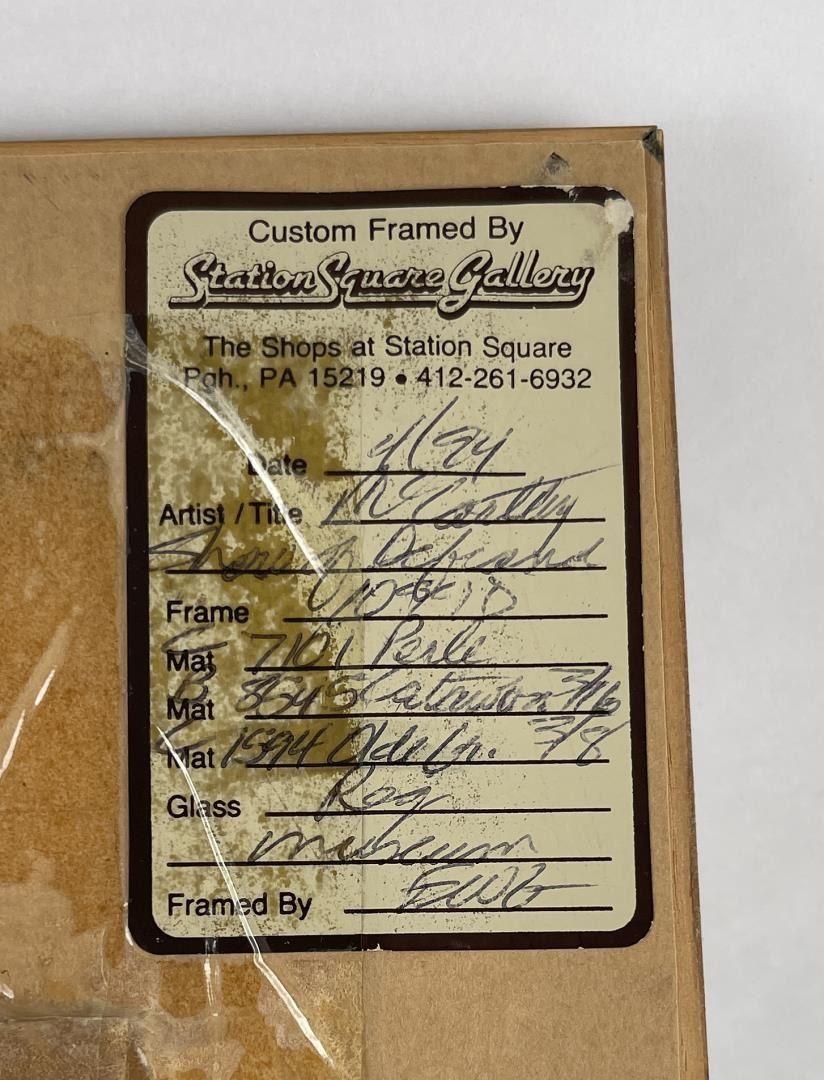 Custom Framed By
Station Square Gallery
The Shops at Station Square
Pgh., PA 15219 • 412-261-6932
Date 4/94
Artist / Title McCarthy
Frame
Mat 7101 Perle
Mat 8545 3/16
Mat 1594 Olde Gr. 3/8
Glass Reg
museum
Framed By